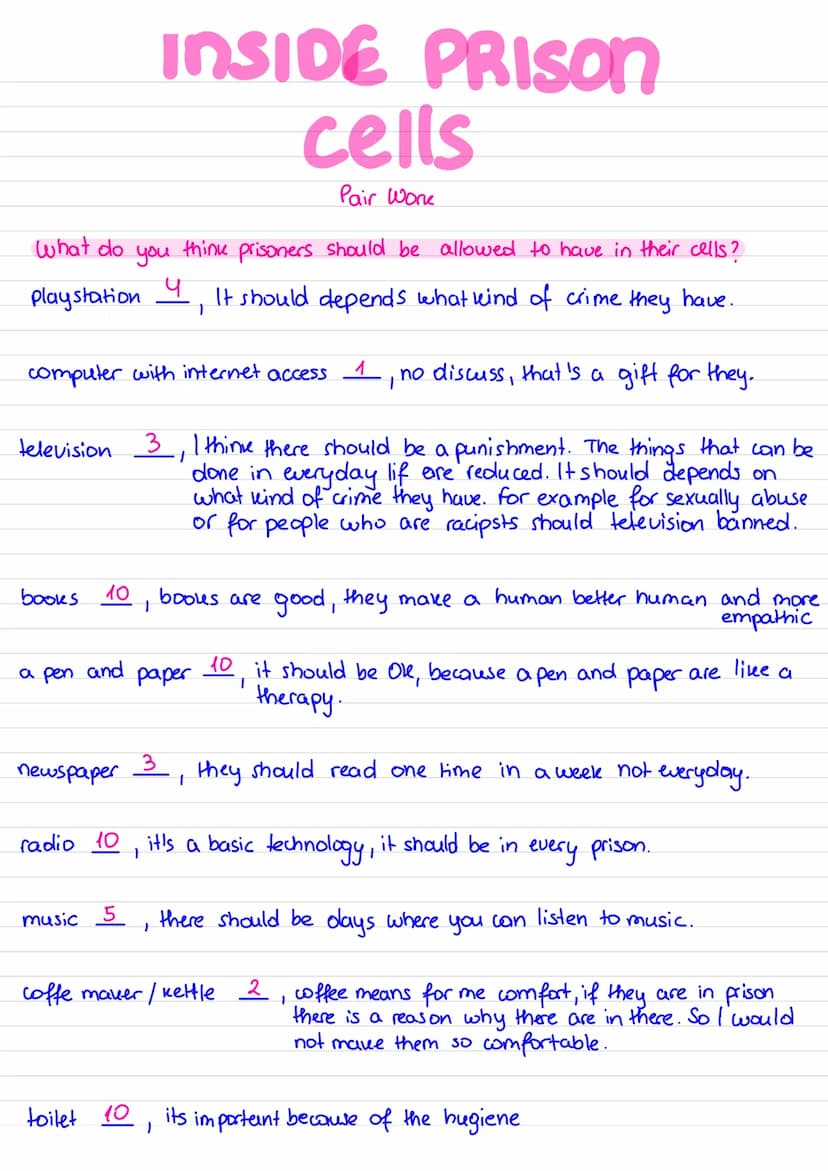 INSIDE PRISON
cells
Pair Work
What do you think prisoners should be allowed to have in their cells?
playstation 4, It should depends what kind of crime they have.
computer with internet access 1, no discuss, that's a gift for they.
television 3, I think there should be a punishment. The things that can be
done in everyday lif are reduced. It should depends on
what kind of crime they have. for example for sexually abuse
or for people who are racipsts should television banned.
books 10, books are good, they make a human better human and more
empathic
a pen and paper 10, it should be Ok, because a pen and paper are like a
therapy.
newspaper 3, they should read one time in a week not everyday.
radio 10, it's a basic technology, it should be in every prison.
music 5, there should be days where you can listen to music.
coffe maker / kettle 2, coffee means for me comfort, if they are in prison
there is a reason why there are in there. So I would
not make them so comfortable.
toilet 10, its important because of the hugiene